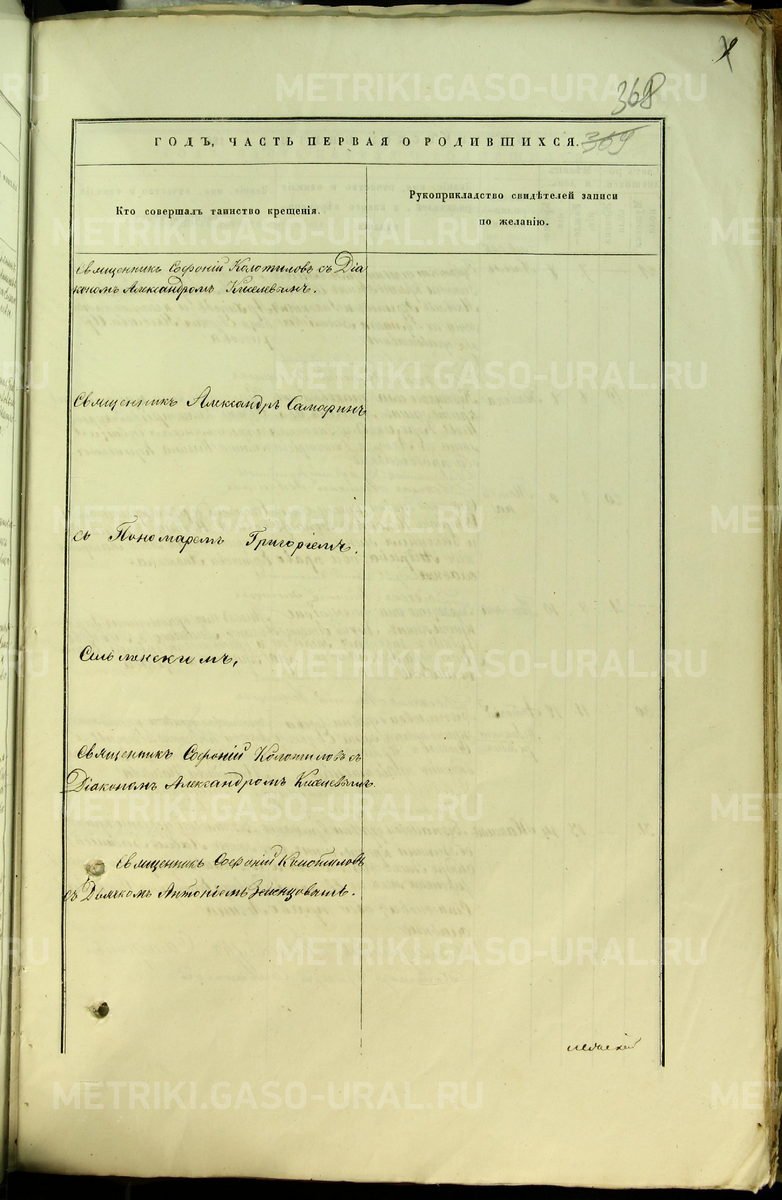 368
369
ГОДЪ, ЧАСТЬ ПЕРВАЯ О РОДИВШИХСЯ.
Кто совершалъ таинство крещенія.
Рукоприкладство свидѣтелей записи
по желанію.
Священникъ Софоній Колотиловъ съ Діа
кономъ Александромъ Киселевымъ.
Священникъ Александръ
съ Пономаремъ Григоріемъ
Священникъ Софоній Колотиловъ съ
Діакономъ Александромъ Киселевымъ
Священникъ Софоній Колотиловъ
съ Дьячкомъ Антоніемъ
METRIKI.GASO-URAL.RU